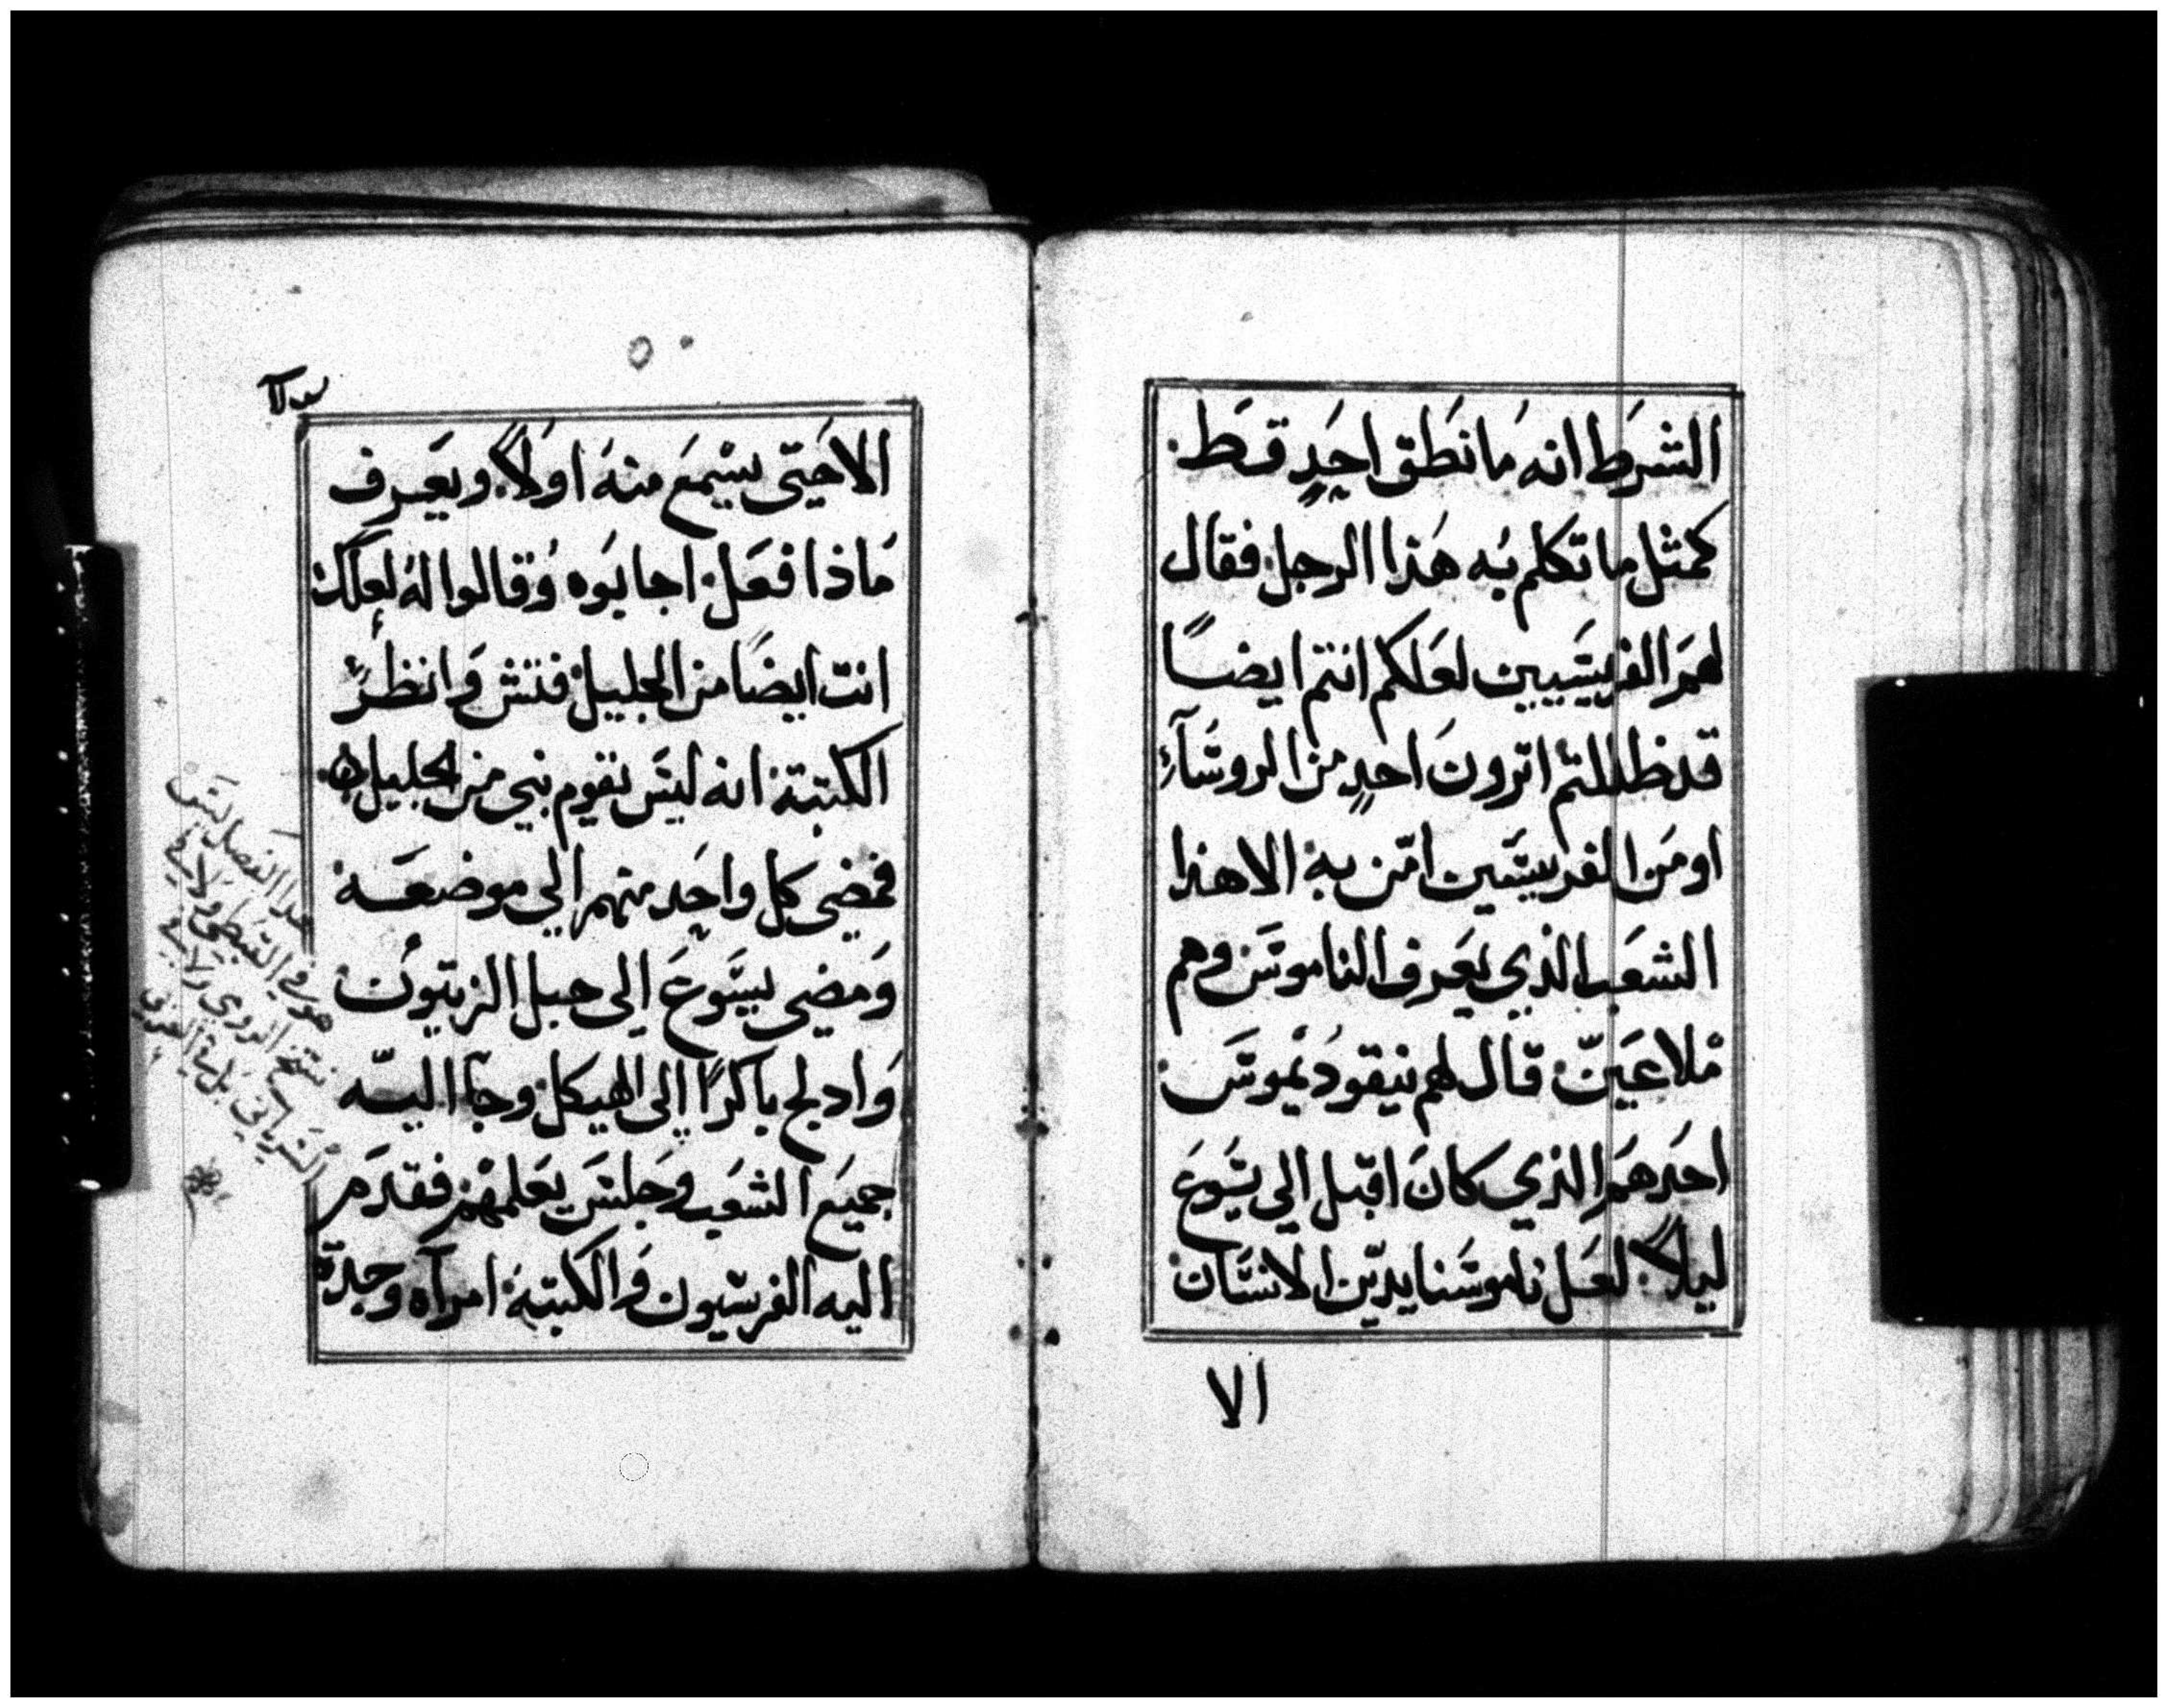 الشرط انه ما نطق احدٍ قط.
كمثل ما تكلم به هذا الرجل. فقال
لهم الفريسيين لعلكم انتم ايضاً
قد ظللتم اترون احدٍ من الروسآءِ
او من الفريسيين امّن به. الا هذا
الشعب الذي يعرف الناموس وهم
ملاعيّن. قال لهم نيقوديموس.
احدهم الذي كان اقبل الي يسوع
ليلاً. لعل ناموسنا يديّن الانسان
الا
الا حتى يسمع منه اولاً. ويعرف
ماذا فعل. اجابوه وقالوا له لعلك
انت ايضاً من الجليل. فتش وانظر
الكتبة. انه ليس يقوم نبي من الجليل.
فمضى كل واحد منهم الي موضعه
ومضي يسوع الى جبل الزيتون
وادلج باكراً الى الهيكل. وجآ اليه
جميع الشعب وجلس يعلمهم. فقدم
اليه الفريسيون والكتبة. امرآه وجدة
هدا الفصل ليس
هو في القبطى ولا في
نسخ الرومي ولا في
السرياني بل في العربي